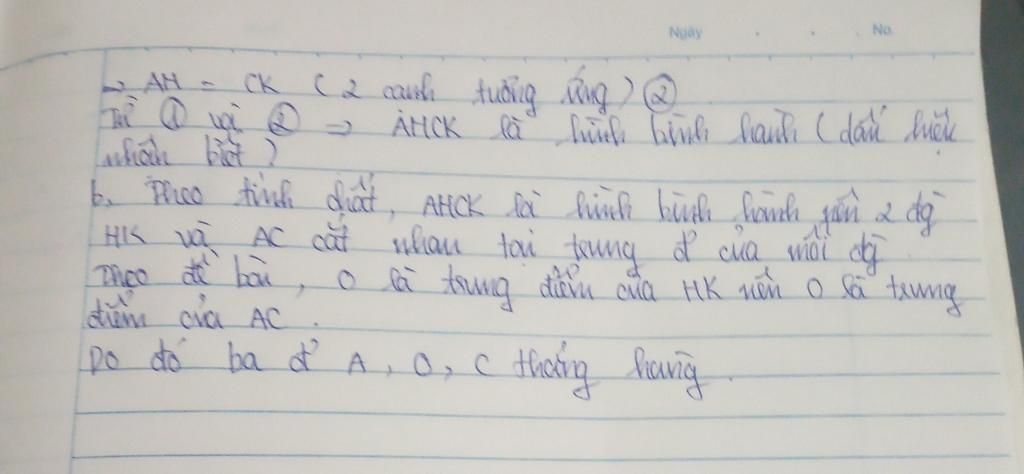 Ngày . . No.
→ AH = CK ( 2 cạnh tương ứng ) ②
Từ ① và ② ⇒ AHCK là hình bình hành ( dấu hiệu
nhận biết )
b. Theo tính chất, AHCK là hình bình hành nên 2 đg
HK và AC cắt nhau tại trung đ' của mỗi đg
Theo đề bài, O là trung điểm của HK nên O là trung
điểm của AC .
Do đó ba đ' A , O , C thẳng hàng .